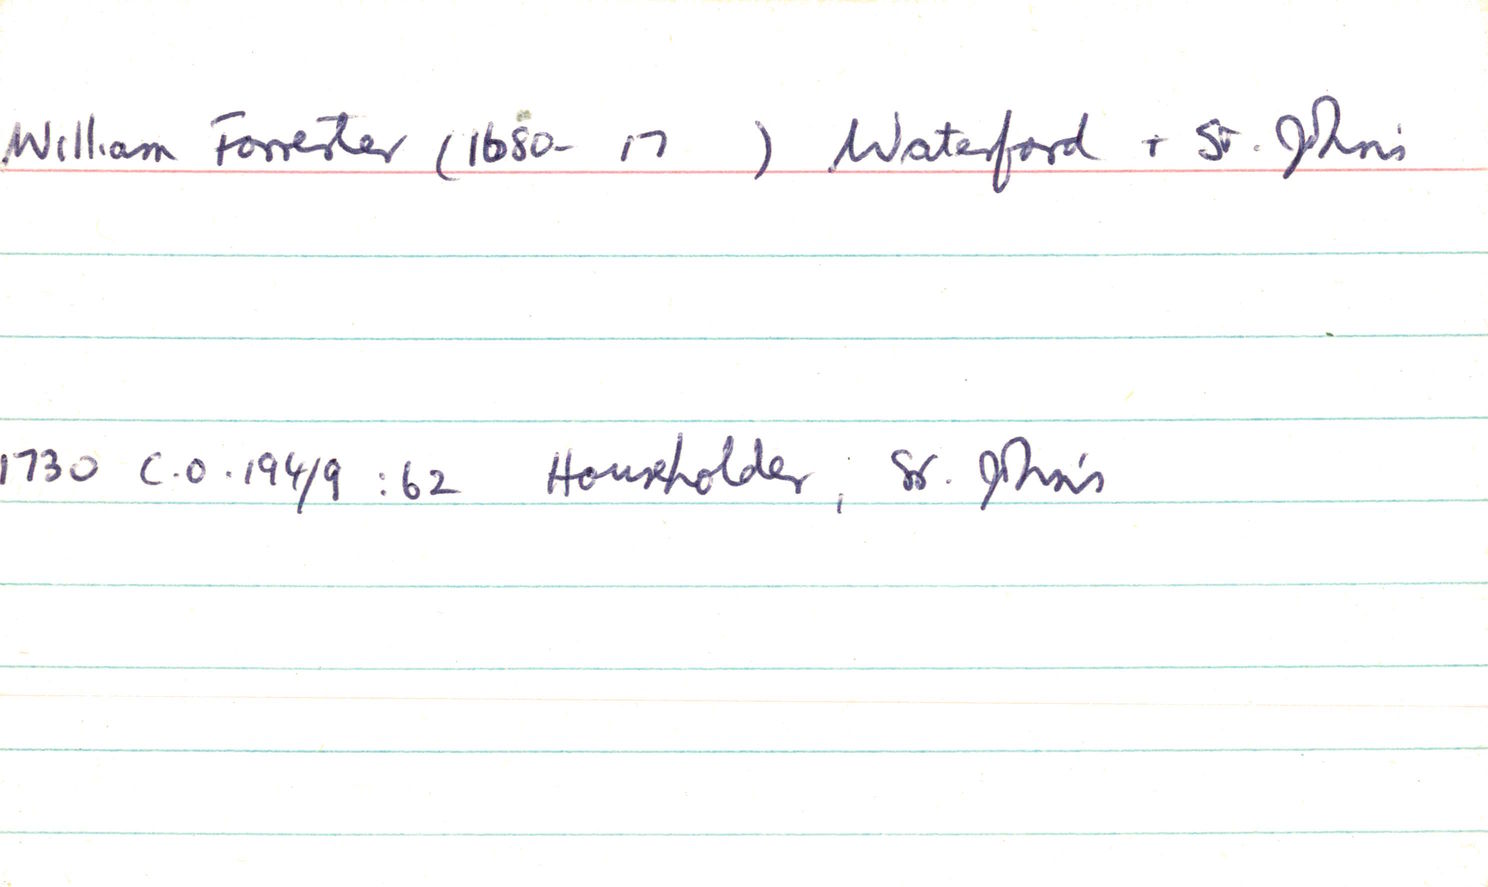 William Forrester (1680- 17 ) Waterford + St. John's
1730 C.O.194/9 :62 Householder, St. John's